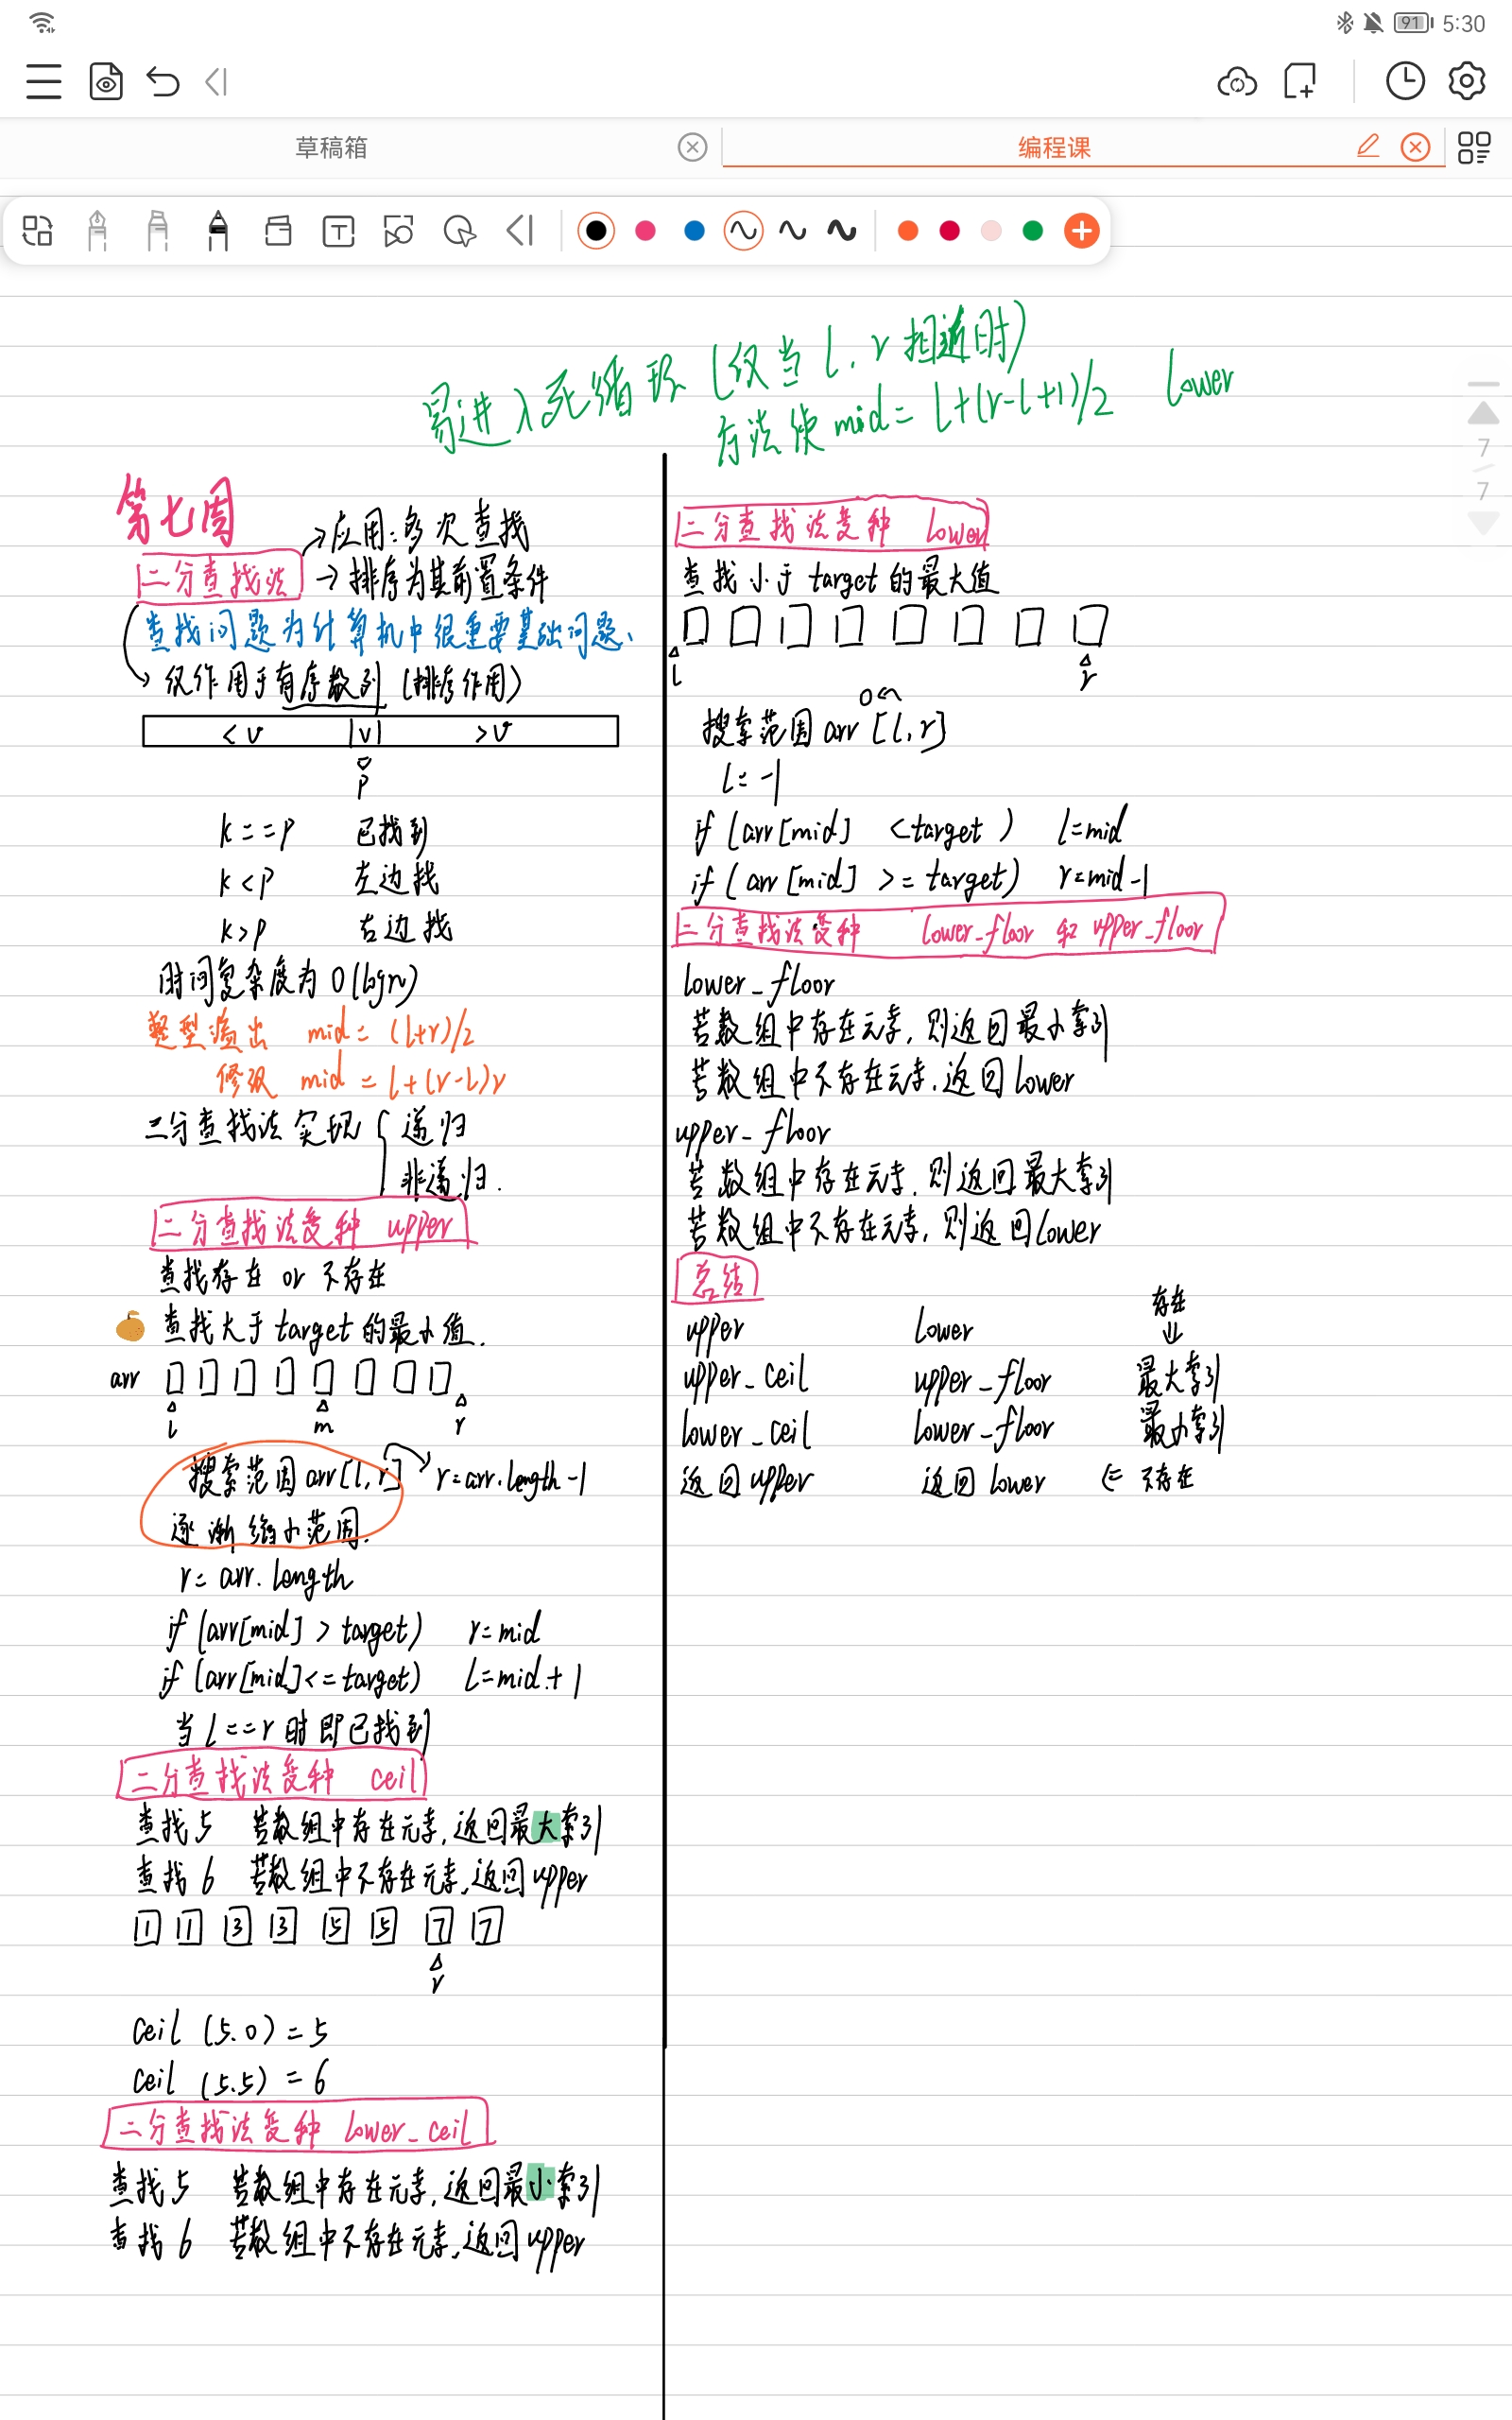 91 5:30
草稿箱
编程课
T
7
7
易进入死循环 (仅当 l, r 相邻时) lower
方法使 mid = l+(r-l+1)/2
第七周
→应用:多次查找
二分查找法 → 排序为其前置条件
查找问题为计算机中很重要基础问题、
仅作用于有序数列 (排序作用)
<v |v| >v
p
k==p 已找到
k<p 左边找
k>p 右边找
时间复杂度为 O(logn)
整型溢出 mid = (l+r)/2
修改 mid = l+(r-l)r
二分查找法实现 { 递归
非递归.
二分查找法变种 upper
查找存在 or 不存在
查找大于 target 的最小值.
arr
l m r
搜索范围 arr[l,r] r=arr.length-1
逐渐缩小范围.
r= arr.length
if (arr[mid] > target) r=mid
if (arr[mid]<=target) l=mid+1
当 l==r 时即已找到
二分查找法变种 ceil
查找5 若数组中存在元素,返回最大索引
查找6 若数组中不存在元素,返回upper
1 1 3 3 5 5 7 7
r
ceil (5.0) = 5
ceil (5.5) = 6
二分查找法变种 lower_ceil
查找5 若数组中存在元素,返回最小索引
查找6 若数组中不存在元素,返回upper
二分查找法变种 lower
查找小于 target 的最大值
l r
0
搜索范围 arr [l,r]
l=-1
if (arr[mid] <target) l=mid
if (arr[mid] >= target) r=mid-1
二分查找法变种 lower_floor 和 upper_floor
lower_floor
若数组中存在元素,则返回最小索引
若数组中不存在元素,返回lower
upper_floor
若数组中存在元素,则返回最大索引
若数组中不存在元素,则返回lower
总结
存在
upper lower ↓
upper_ceil upper_floor 最大索引
lower_ceil lower_floor 最小索引
返回upper 返回lower ⇐ 不存在